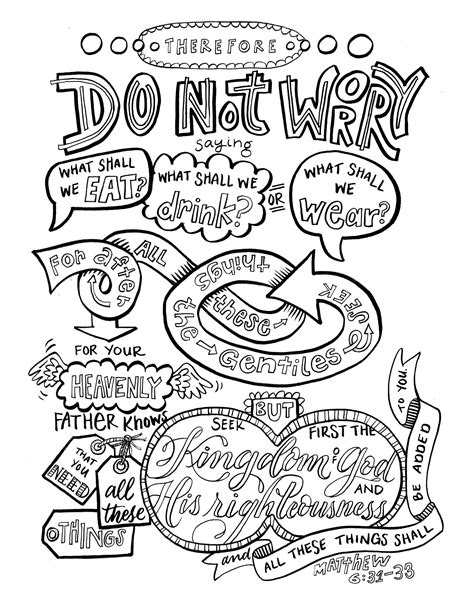 THEREFORE
DO NOT WORRY
saying
WHAT SHALL
WE EAT?
WHAT SHALL WE
drink?
OR
WHAT SHALL
WE
wear?
For after
ALL
these
things
the → Gentiles
SEEK
FOR YOUR
HEAVENLY
FATHER KNOWS
THAT
YOU
NEED
all
these
THINGS
BUT
SEEK FIRST THE
Kingdom of God
AND
His righteousness
and
ALL THESE THINGS SHALL
BE ADDED
TO YOU.
MATTHEW
6:31-33